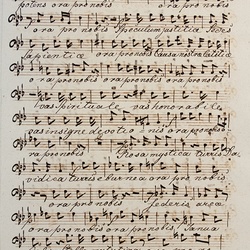 potens ora pro nobis ora pro nobis
ora pro nobis Speculum justitiae Sedes
sapientiae ora pro nobis Causa nostrae laetitiae
ora pro nobis ora pro nobis ora pro nobis
vas spirituale vas honorabile
vas insigne devotionis ora pro nobis
ora pro nobis Rosa mystica turris Da
vidica turris eburnea ora pro nobis
ora pro nobis Foederis arca
ora pro nobis ora pro nobis Janua